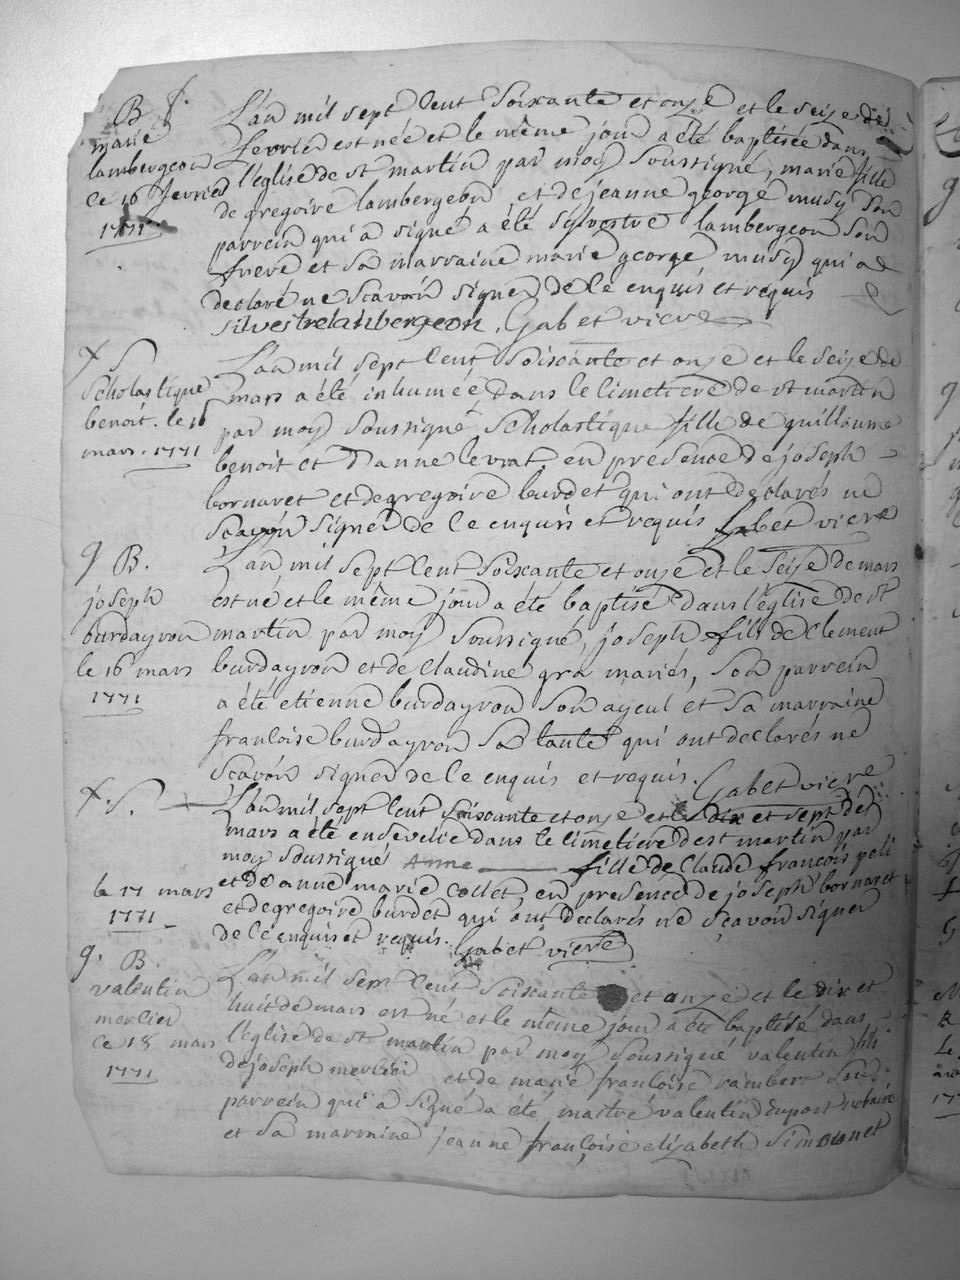 B f.
marie
lambergeon
ce 16 fevrier
1771
L'an mil sept Cent Soixante et onze et le seize de
fevrier est née et le même jour a été baptisée dans
l'église de st martin par moy Soussigné, marie fille
de gregoire lambergeon, et de jeanne george musy Son
parrein qui a signé a été Sylvestre lambergeon Son
frere et sa marraine marie george musy qui a
declaré ne Scavoir signer de Ce enquis et requis
Silvestre lanbergeon. Gabet vicre
+ S
Scholastique
benoit. le 16
mars. 1771
L'an mil sept Cent Soixante et onze et le seize de
mars a été inhumée dans le Cimetiere de st martin
par moy Soussigné Scholastique fille de guillaume
benoit et d'anne levrat en presence de joseph
bornaret et de gregoire burdet qui ont declarés ne
Scavoir Signer de Ce enquis et requis Gabet vicre
g B.
joseph
burdayron
le 16 mars
1771
L'an mil sept Cent Soixante et onze et le Seize de mars
est né et le même jour a été baptisé dans l'église de st
martin par moy Soussigné, joseph fils de Clement
burdayron et de Claudine gra mariés, Son parrein
a été etienne burdayron Son ayeul et Sa marraine
francoise burdayron Sa tante qui ont declarés ne
Scavoir signer de Ce enquis et requis. Gabet vicre
+. S.
le 17 mars
1771
L'an mil sept Cent Soixante et onze et le dix et sept de
mars a été ensevelie dans le Cimetiere de st martin par
moy Soussigné Anne fille de Claude francois peli
et de anne marie Collet, en presence de joseph bornaret
et de gregoire burdet qui ont declarés ne Scavoir signer
de Ce enquis et requis. Gabet vicre
g. B.
valentin
merlier
ce 18 mars
1771
L'an mil sept Cent Soixante et onze et le dix et
huit de mars est né et le même jour a été baptisé dans
l'église de st martin par moy Soussigné valentin fils
de joseph merlier et de marie francoise rambert Son
parrein qui a signé a été, maitre valentin dupont notaire
et Sa marraine jeanne françoise elizabeth Simonet